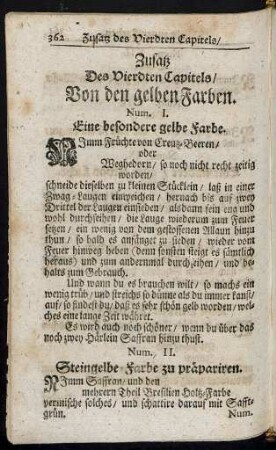 362 Zusatz des Vierdten Capitels/
Zusatz
Des Vierdten Capitels/
Von den gelben Farben.
Num. I.
Eine besondere gelbe Farbe.
NImm Früchte von Creutz-Beeren/
oder
Weghdorn/ so noch nicht recht zeitig
worden/
schneide dieselben zu kleinen Stücklein/ laß in einer
Zwag-Laugen einweichen/ hernach bis auf zwey
Drittel der Laugen einsieden/ alsdann sein eng und
wohl durchseihen/ die Lauge wiederum zum Feuer
setzen/ ein wenig von dem gestossenen Allaun hinzu
thun/ so bald es anfänget zu sieden/ wieder vom
Feuer hinweg heben (denn sonsten steigt es sämtlich
heraus) und zum andernmal durchseihen/ und be-
halts zum Gebrauch.
Und wann du es brauchen wilt/ so mach es ein
wenig trüb/ und streichs so dünne als du immer kanst/
auf/ so findest du/ daß es sehr schön gelb worden/ wel-
ches eine lange Zeit währet.
Es wird auch noch schöner/ wann du über das
noch zwey Härlein Saffran hinzu thust.
Num. II.
Steingelbe Farbe zu präpariren.
NImm Saffran/ und den
mehrern Theil Bresilien Holtz-Farbe
vermische solches/ und schattire darauf mit Safft-
grün. Num.